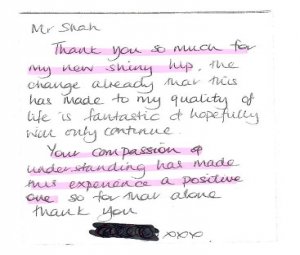 Mr Shah
Thank you so much for
my new shiny hip, the
change already that this
has made to my quality of
life is fantastic & hopefully
will only continue.
Your compassion &
understanding has made
this experience a positive
one so for that alone
thank you
xoxo